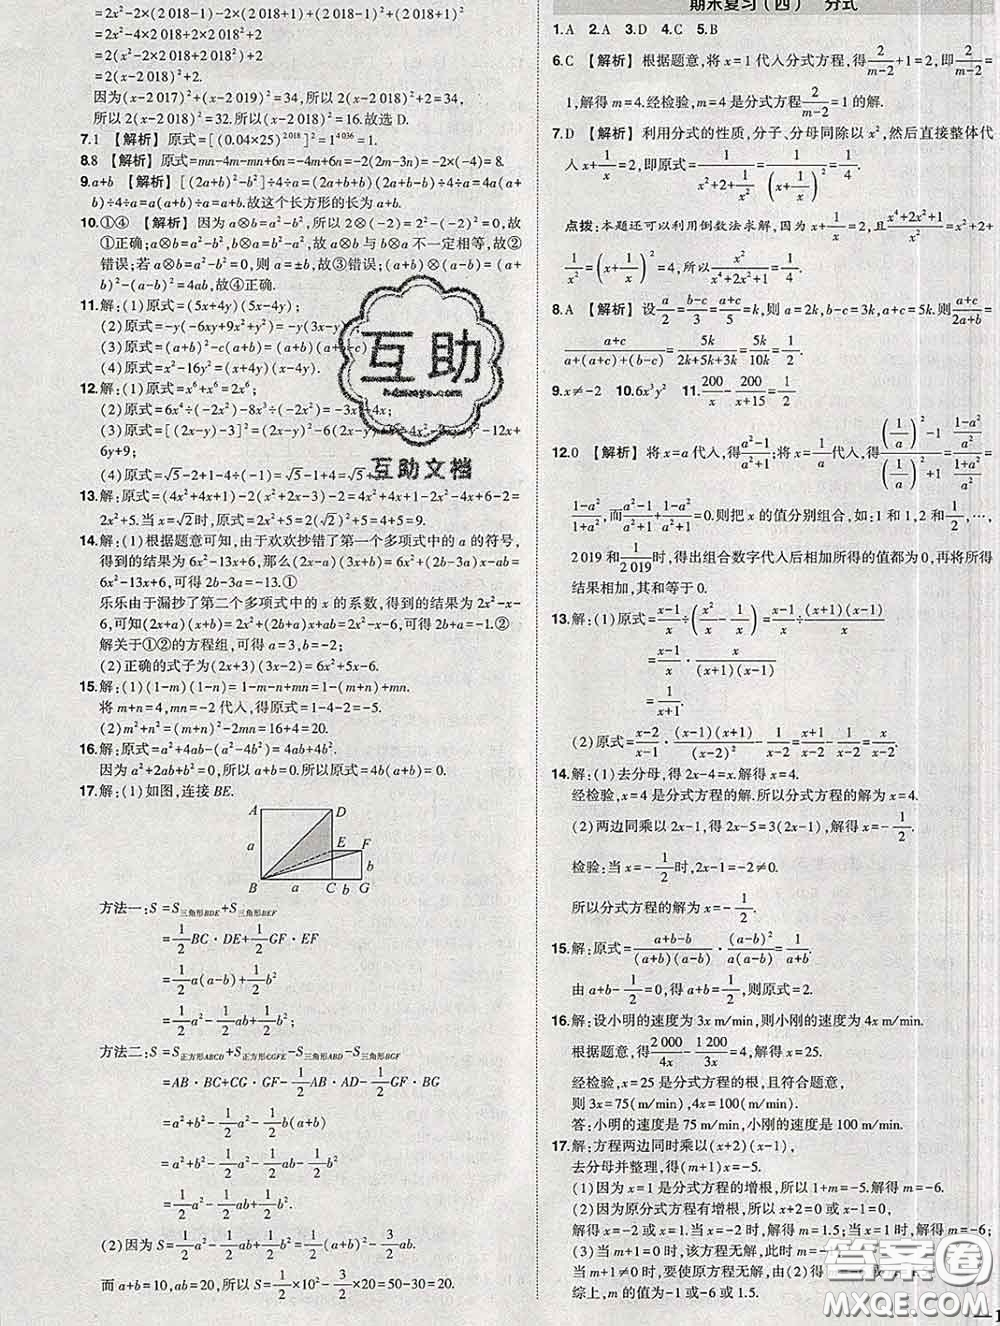 =2x²-2×2 018x+2×2 018x+2×2 018²+2
=2x²-4×2 018x+2×2 018²+2
=2(x²-2×2 018x+2 018²)+2
=2(x-2 018)²+2.
因为(x-2 017)²+(x-2 019)²=34,所以2(x-2 018)²+2=34,
所以2(x-2 018)²=32.所以(x-2 018)²=16.故选D.
7.1 【解析】原式=[(0.04×25)²⁰¹⁸]²=1⁴⁰³⁶=1.
8.8 【解析】原式=mn-4m-mn+6n=-4m+6n=-2(2m-3n)=-2×(-4)=8.
9.a+b 【解析】[(2a+b)²-b²]÷4÷a=(2a+b+b)(2a+b-b)÷4÷a=4a(a+b)÷4÷a=a(a+b)÷a=a+b.故这个长方形的长为a+b.
10.①④ 【解析】因为a⊗b=a²-b²,所以2⊗(-2)=2²-(-2)²=0,故
①正确;a⊗b=a²-b²,b⊗a=b²-a²,故a⊗b与b⊗a不一定相等,故②
错误;若a⊗b=a²-b²=0,则a=±b,故③错误;(a+b)⊗(a-b)=(a+b)²-(a-b)²=4ab,故④正确.
11.解:(1)原式=(5x+4y)(5x-4y);
(2)原式=-y(-6xy+9x²+y²)=-y(3x-y)²;
(3)原式=(a+b)²-c(a+b)=(a+b)(a+b-c);
(4)原式=x²-16y²=(x+4y)(x-4y).
12.解:(1)原式=x⁶+x⁶=2x⁶;
(2)原式=6x⁴÷(-2x²)-8x³÷(-2x²)=-3x²+4x;
(3)原式=[(2x-y)-3]²=(2x-y)²-6(2x-y)+9=4x²-4xy+y²-12x+
6y+9;
(4)原式=√5-2+1-4÷(-1)=√5-1+4=√5+3.
13.解:原式=(4x²+4x+1)-2(x²+2x-3)-2=4x²+4x+1-2x²-4x+6-2=
2x²+5.当x=√2时,原式=2x²+5=2(√2)²+5=4+5=9.
14.解:(1)根据题意可知,由于欢欢抄错了第一个多项式中的a的符号,
得到的结果为6x²-13x+6,那么(2x-a)(3x+b)=6x²+(2b-3a)x-ab=
6x²-13x+6,可得2b-3a=-13.①
乐乐由于漏抄了第二个多项式中的x的系数,得到的结果为2x²-x-
6,可知(2x+a)(x+b)=2x²+(a+2b)x+ab=2x²-x-6,可得2b+a=-1.②
解关于①②的方程组,可得a=3,b=-2;
(2)正确的式子为(2x+3)(3x-2)=6x²+5x-6.
15.解:(1)(1-m)(1-n)=1-m-n+mn=1-(m+n)+mn.
将m+n=4,mn=-2代入,得原式=1-4-2=-5.
(2)m²+n²=(m+n)²-2mn=16+4=20.
16.解:原式=a²+4ab-(a²-4b²)=4ab+4b².
因为a²+2ab+b²=0,所以a+b=0,所以原式=4b(a+b)=0.
17.解:(1)如图,连接BE.
A D a E F b B a C b G
方法一:S=S三角形BDE+S三角形BEF
=1/2BC·DE+1/2GF·EF
=1/2a(a-b)+1/2b²
=1/2a²-1/2ab+1/2b²;
方法二:S=S正方形ABCD+S正方形CGFE-S三角形ABD-S三角形BGF
=AB·BC+CG·GF-1/2AB·AD-1/2GF·BG
=a²+b²-1/2a²-1/2b(a+b)
=a²+b²-1/2a²-1/2ab-1/2b²
=1/2a²-1/2ab+1/2b².
(2)因为S=1/2a²-1/2ab+1/2b²=1/2(a+b)²-3/2ab,
而a+b=10,ab=20,所以S=1/2×10²-3/2×20=50-30=20.
期末复习(四) 分式
1.A 2.A 3.D 4.C 5.B
6.C 【解析】根据题意,将x=1代入分式方程,得2/(m-2)+1=2,即2/(m-2)=
1,解得m=4.经检验,m=4是分式方程2/(m-2)=1的解.
7.D 【解析】利用分式的性质,分子、分母同除以x²,然后直接整体代
入x+1/x=2,即原式=1/(x²+2+1/x²)=1/(x+1/x)²=1/4.
点拨:本题还可以利用倒数法求解,因为x+1/x=2,且(x⁴+2x²+1)/x²=x²+2
+1/x²=(x+1/x)²=4,所以x²/(x⁴+2x²+1)=1/4.
8.A 【解析】设a/2=(b-c)/3=(a+c)/5=k,则a=2k,b-c=3k,a+c=5k,则原式=(a+c)/(2a+b)=
(a+c)/(a+(a+c)+(b-c))=5k/(2k+5k+3k)=5k/10k=1/2.
9.x≠-2 10.6x³y² 11.200/x-200/(x+15)=1/2
12.0 【解析】将x=a代入,得(a²-1)/(a²+1);将x=1/a代入,得((1/a)²-1)/((1/a)²+1)=((1-a²)/a²)/((1+a²)/a²)=
(1-a²)/(1+a²),而(a²-1)/(a²+1)+(1-a²)/(a²+1)=0.则把x的值分别组合,如:1和1,2和1/2,…,
2 019和1/2 019时,得出组合数字代入后相加所得的值都为0,再将所得
结果相加,其和等于0.
13.解:(1)原式=(x-1)/x÷(x²/x-1/x)=(x-1)/x÷(x+1)(x-1)/x
=(x-1)/x·x/(x+1)(x-1)
=1/(x+1).
(2)原式=(x-2)/(x-1)·(x-1)(x+1)/(x-2)²-1/(x-2)=(x+1)/(x-2)-1/(x-2)=x/(x-2).
14.解:(1)去分母,得2x-4=x.解得x=4.
经检验,x=4是分式方程的解.所以分式方程的解为x=4.
(2)两边同乘以2x-1,得2x-5=3(2x-1),解得x=-1/2.
检验:当x=-1/2时,2x-1=-2≠0.
所以分式方程的解为x=-1/2.
15.解:原式=(a+b-b)/(a+b)(a-b)·(a-b)²/a(a-b)=1/(a+b).
由a+b-1/2=0,得a+b=1/2,则原式=2.
16.解:设小明的速度为3x m/min,则小刚的速度为4x m/min.
根据题意,得2 000/4x-1 200/3x=4,解得x=25.
经检验,x=25是分式方程的根,且符合题意,
则3x=75(m/min),4x=100(m/min).
答:小明的速度是75 m/min,小刚的速度是100 m/min.
17.解:方程两边同时乘以(x+2)(x-1),
去分母并整理,得(m+1)x=-5.
(1)因为x=1是分式方程的增根,所以1+m=-5.解得m=-6.
(2)因为原分式方程有增根,所以x+2=0或x-1=0,
解得x=-2或x=1.当x=-2时,m=1.5;当x=1时,解得m=-6;
(3)当m+1=0时,该方程无解,此时m=-1;
当m+1≠0时,要使原方程无解,由(2)得
综上,m的值为-1或-6或1.5.
互助
互助文档
答案圈
MXQE.COM